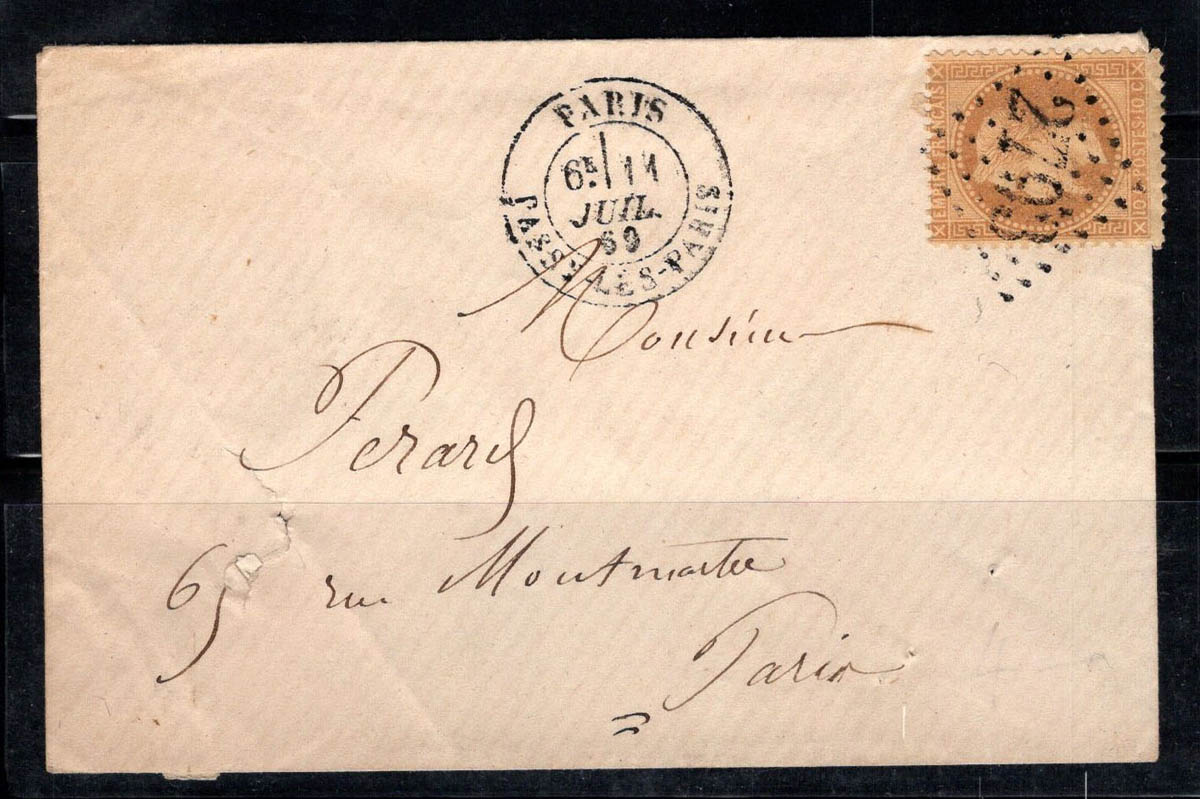 PARIS
6E 11
JUIL.
69
PASSY-LES-PARIS
EMPIRE FRANÇAIS
10 C. POSTES 10 C.
2793
Monsieur
Ferard
65 rue Montmartre
Paris